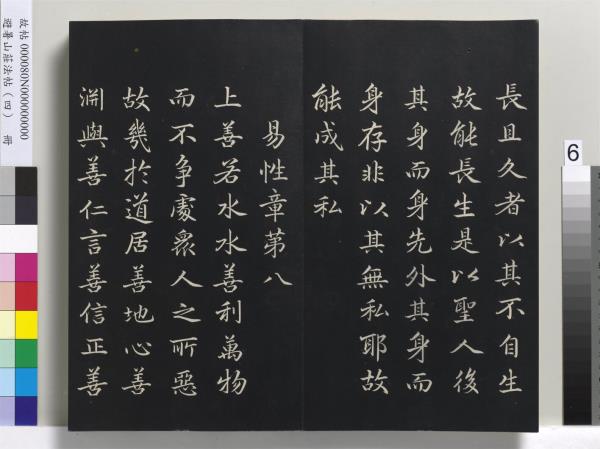 長且久者以其不自生
故能長生是以聖人後
其身而身先外其身而
身存非以其無私耶故
能成其私
易性章第八
上善若水水善利萬物
而不爭處衆人之所惡
故幾於道居善地心善
淵與善仁言善信正善
故帖000080N000000000
避暑山莊法帖(四) 冊
6